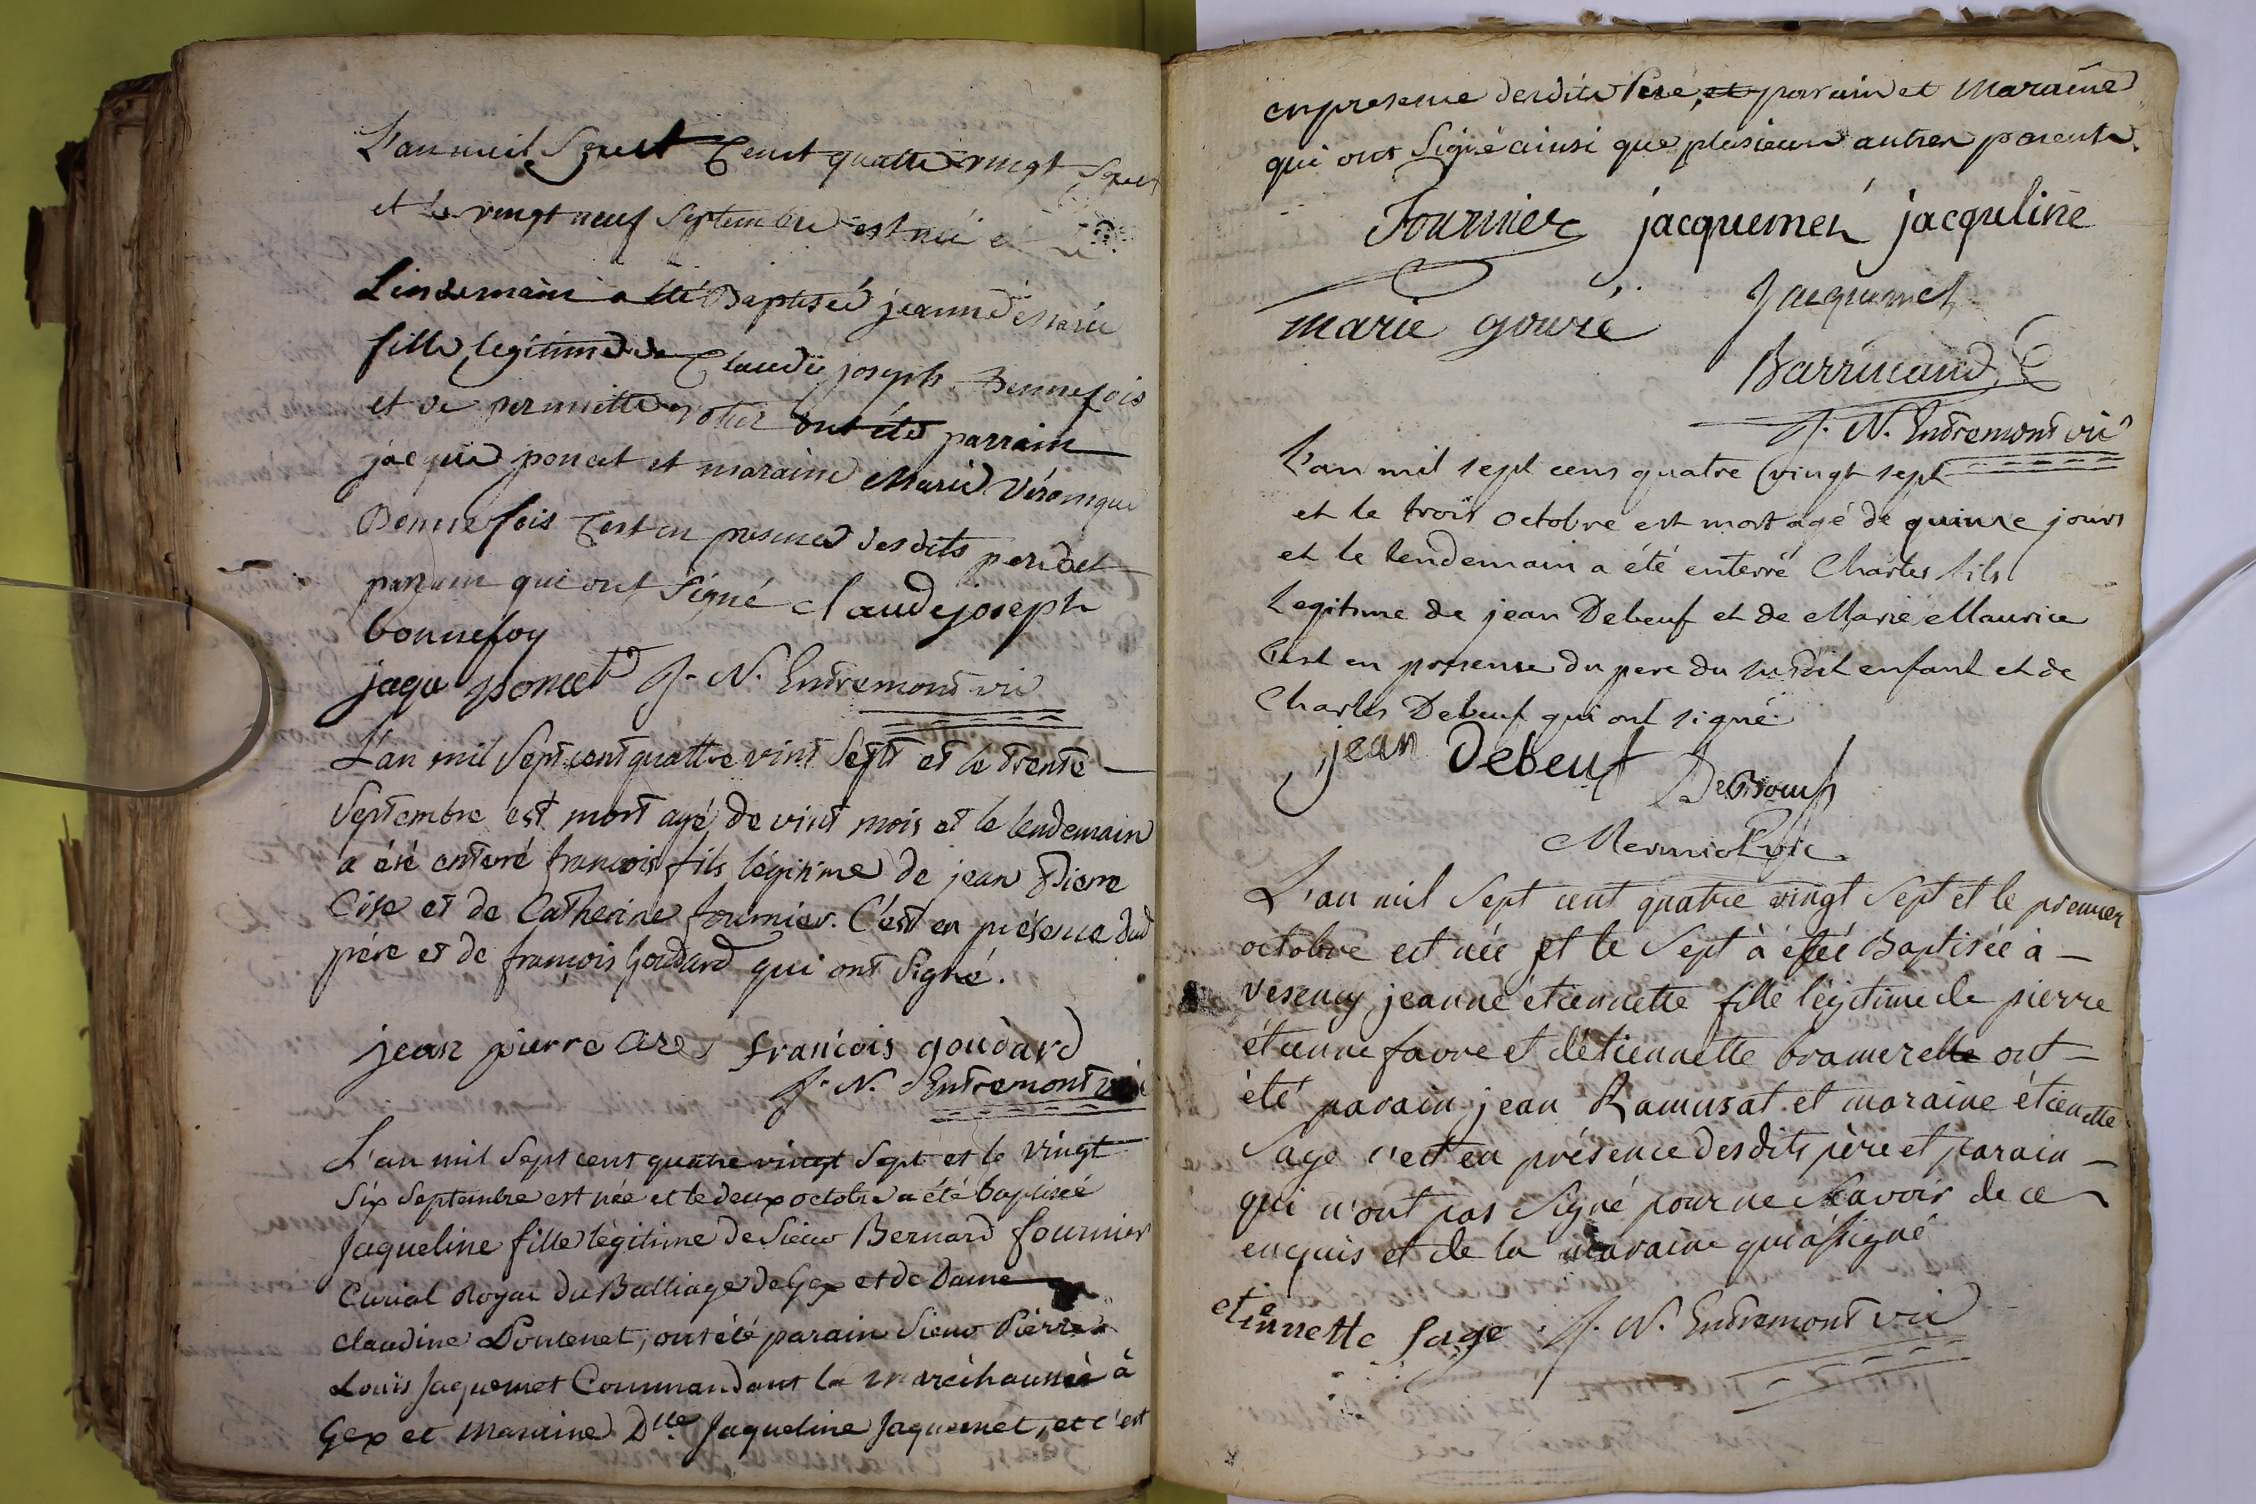 L'an mil Sept Cent quatre vingt Sept
et le vingt neuf Septembre est née et
Lindemain a été Baptisée jeanne
fille legitime de Claude joseph Bennefois
et de pernette ont été parrain
jaque poncet et maraine Marie Véronique
Bennefois C'est en presence desdits pere et
parrain qui ont Signé claude joseph
bonnefoy
jaque poncet J. N. Entremont vic
L'an mil Sept cent quattre vint Sept et le trente
Septembre est mort agé de vint mois et le lendemain
a été enterré françois fils légitime de jean Pierre
et de Catherine fournier. C'est en présence dud
père et de françois Goudard qui ont Signé.
jean pierre françois goudard
J. N. Entremont vic
L'an mil Sept cent quatre vingt Sept et le vingt
Six Septembre est née et le deux octobre a été baptisée
Jaqueline fille légitime de Sieur Bernard fournier
Curial Royal du Balliage de Gex et de Dame
claudine Pontenet, ont été parain Sieur Pierre
Louis Jaquemet Commandant la maréchaussée à
Gex et Maraine Dlle Jaqueline Jaquemet, et c'est
en presence desdits Pere, et parain et Maraine
qui ont Signé ainsi que plusieurs autres parents.
Fournier jacquemet jacquline
marie gouré Jacquemet
Barrucand
J. N. Entremont vic
L'an mil sept cens quatre vingt sept
et le trois octobre est mort agé de quinze jours
et le lendemain a été enterré Charles fils
Legitime de jean Debeuf et de Marie Maurice
C'est en presence du pere du susdit enfant et de
Charles Debeuf qui ont signé
jean Debeuf
DeBoeuf
Mermier vic
L'an mil Sept cent quatre vingt Sept et le premier
octobre est née et le Sept à étéé Baptisée à
Vesency jeanne étiennette fille légitime de pierre
étienne favre et d'étiennette bramerelle ont
été parain jean Ramusat et maraine étiennette
Sage c'est en présence desdits père et parain
qui n'ont pas Signé pour ne Scavoir de ce
enquis et de la maraine qui à Signé
etiennette Sage J. N. Entremont vic